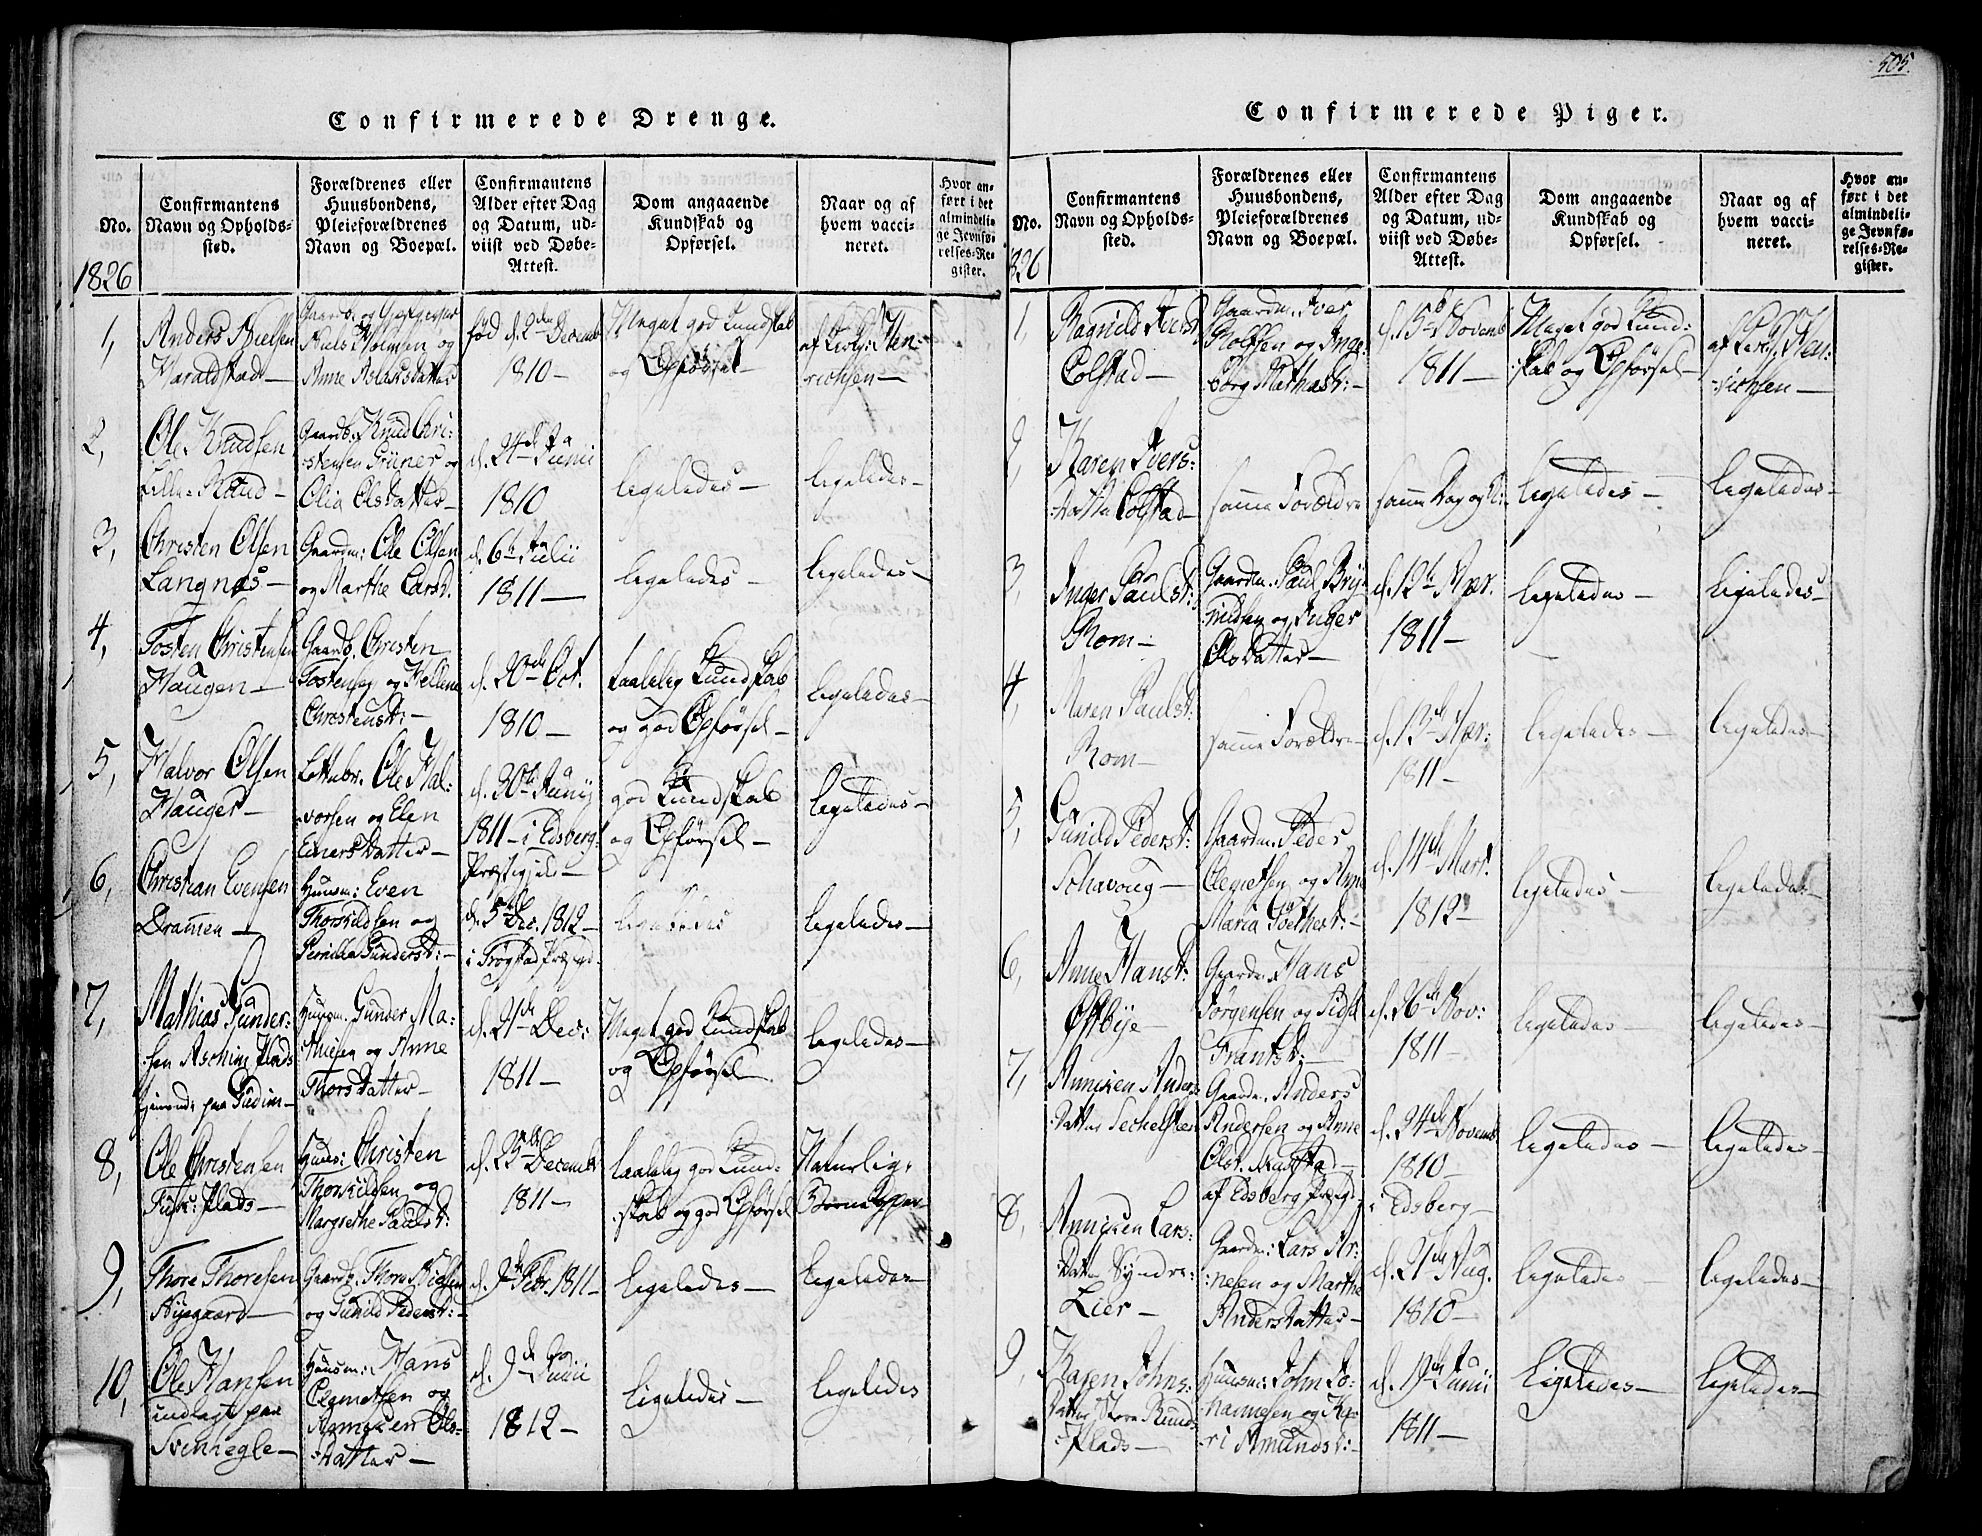 505.
Confirmerede Drenge.
No.
Confirmantens
Navn og Opholds-
sted.
Forældrenes eller
Huusbondens,
Pleieforældrenes
Navn og Boepæl.
Confirmantens
Alder efter Dag
og Datum, ud-
viist ved Døbe-
Attest.
Dom angaaende
Kundskab og
Opførsel.
Naar og af
hvem vacci-
neret.
Hvor an-
ført i det
almindeli-
ge Jevnfø-
relses-Re-
gister.
1826
1,
Anders Nielsen
Haraldstad
Gaardb. og Gjæstgiver
Niels Holmsen og
Anne Aslaksdatter
fød d. 2den Decemb
1810 —
Meget god Kundskab
og Opførsel —
af Hen-
richsen —
2,
Ole Knudsen
Lille-Rûud —
Gaardb. Knud Chri-
stensen Grüner og
Olia Olsdatter —
d. 24de Junii
1810
ligeledes —
ligeledes —
3,
Christen Olsen
Langnæs —
Gaardm: Ole Olsen
og Marthe Larsd.
d. 6te Julii
1811 —
ligeledes —
ligeledes —
4,
Tosten Christensen
Haugen —
Gaardb. Christen
Tostensen og Hellene
Christensd: —
d. 20de Oct.
1810 —
taalelig Kundskab
og god Opførsel —
ligeledes —
5,
Halvor Olsen
Hauger —
Ole Hal-
vorsen og Elen
Einersdatter —
d. 30te Junij
1811 — i Edsberg
Præstegjeld —
god Kundskab
og Opførsel —
ligeledes —
6,
Christian Evensen
Dramen —
Huusm: Even
Thorkildsen og
Pernille Gundersd: —
d. 5te Dec. 1812 —
i Trøgstad Præsgd
ligeledes
ligeledes —
7,
Mathias Gunder-
sen Aschim Plads
tjenende paa
Huusm. Gunder Ma-
thiesen og Anne
Thorsdatter —
d. 21de Dec:
1811 —
Meget god Kundskab
og Opførsel.
ligeledes —
8,
Ole Christensen
Plads —
Huusm: Christen
Thorkildsen og
Margrethe Paulsd:
d. 25de Decemb
1811 —
taalelig god Kund-
skab og god Opførsel
Naturlig-
Børnekopper
9,
Thore Thoresen
Nygaard —
Gaardb. Thore Nielsen
og Gunild Pedersd: —
d. 2de Febr. 1811 —
ligeledes —
ligeledes —
10,
Ole Hansen
indlagt paa
Svinnegle —
Huusm: Hans
Clemetsen og
Anniken Ols-
datter —
d. 9de Junii
1812 —
ligeledes —
ligeledes
Confirmerede Piger.
No.
Confirmantens
Navn og Opholds-
sted.
Forældrenes eller
Huusbondens,
Pleieforældrenes
Navn og Boepæl.
Confirmantens
Alder efter Dag
og Datum, ud-
viist ved Døbe-
Attest.
Dom angaaende
Kundskab og
Opførsel.
Naar og af
hvem vacci-
neret.
Hvor an-
ført i det
almindeli-
ge Jevnfø-
relses-Re-
gister.
1826
1,
Ragnild Iversd
Colstad —
Gaardm. Iver
Rolfsen og Inge-
borg Mathiasd: —
d. 15de Novemb
1811 —
Meget god Kund-
skab og Opførsel —
af Hen-
richsen —
2,
Karen Ivers-
datter Colstad —
samme Forældre
samme Dag og
ligeledes —
ligeledes —
3,
Inger Paulsd:
Rom —
Gaardm. Paul Bry-
nildsen og Inger
Olsdatter —
d. 12te Mar.
1811 —
ligeledes —
ligeledes —
4,
Maren Paulsd:
Rom —
samme Forældre —
d. 13de Mar:
1811 —
ligeledes —
ligeledes —
5,
Gunild Pedersd:
Gaardm. Peder
Clemetsen og Anne
Maria
d. 14de Mart.
1812 —
ligeledes —
ligeledes —
6,
Anne Hansd:
Østbye —
Gaardm. Hans
Jørgensen og Sidsel
Frantsd: —
d. 26de Nov:
1811 —
ligeledes —
ligeledes —
7,
Anniken Anders-
datter Sechelsteen
Gaardm. Anders
Andersen og Anne
Olsd.
af Edsberg Præsgd
d. 24de Novemb
1810 —
i Edsberg —
ligeledes —
ligeledes —
8,
Anniken Lars-
datter Syndre-
Lier —
Gaardm: Lars Ar-
nesen og Marthe
Andersdatter —
d. 21de Aug.
1810 —
ligeledes —
ligeledes —
9,
Karen Johns-
datter Store Ruud-
Plads —
Huusm: John Jo-
hannesen og Ka-
ri Amundsd: —
d. 19de Junii
1811 —
ligeledes —
ligeledes —